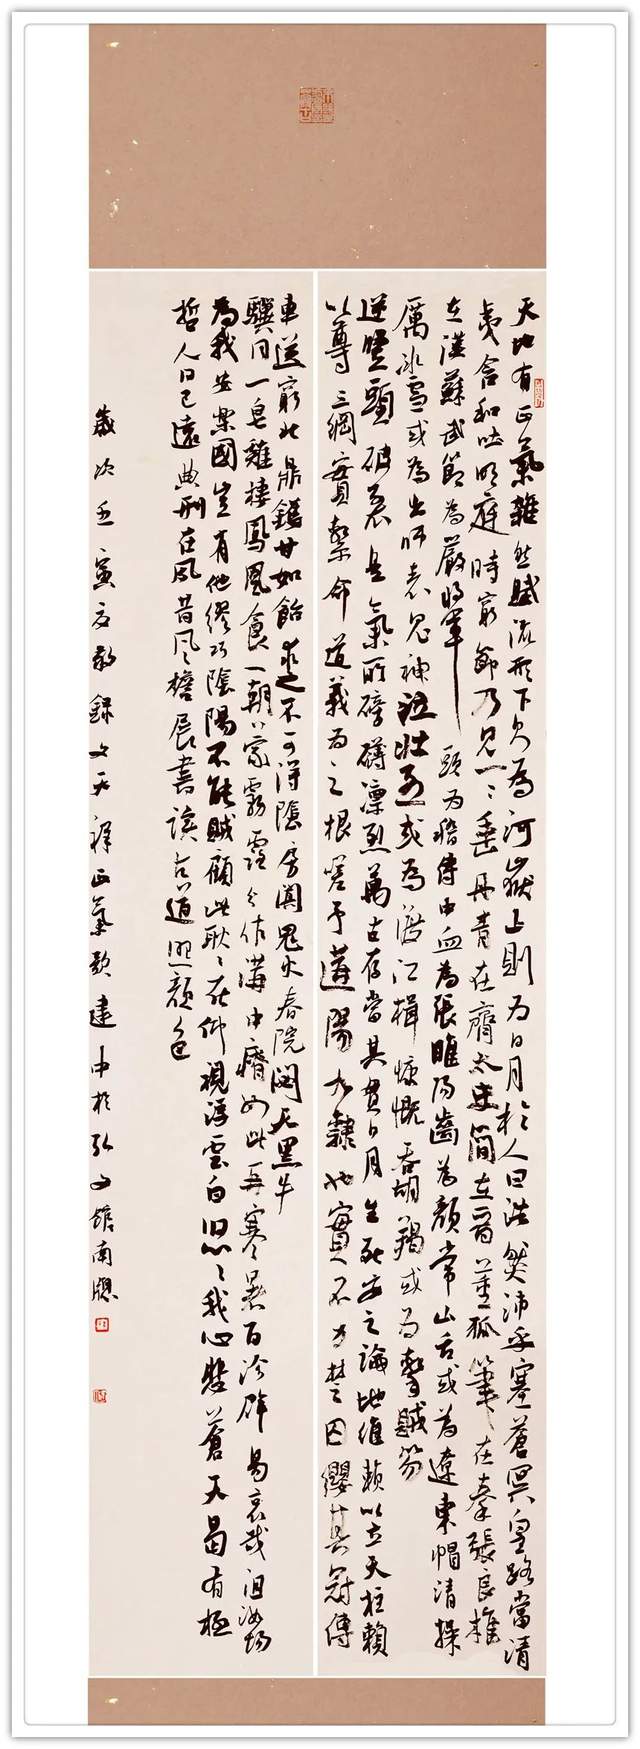 天地有正氣雜然賦流形下則為河嶽上則为日月於人曰浩然沛乎塞蒼冥皇路當清
夷含和吐明庭時窮節乃見一々垂丹青在齊太史簡在晉董狐筆在秦張良椎
在漢蘇武節為嚴將軍頭为嵇侍中血為張睢陽齒為顏常山舌或為遼東帽清操
厲冰雪或為出師表鬼神泣壯烈或為渡江楫慷慨吞胡羯或为擊賊笏
逆豎頭破裂是氣所磅礴凜烈萬古存當其貫日月生死安足論地維賴以立天柱賴
以尊三綱實繫命道義为之根嗟予遘陽九隸也實不力楚囚纓其冠傳
車送窮北鼎鑊甘如飴求之不可得陰房闃鬼火春院閟天黑牛
驥同一皂雞棲鳳凰食一朝蒙霧露分作溝中瘠如此再寒暑百沴辟易哀哉沮洳場
為我安樂國豈有他繆巧陰陽不能賊顧此耿々在仰視浮雲白悠々我心悲蒼天曷有極
哲人日已遠典刑在夙昔風檐展書讀古道照顏色
歲次壬寅夏敬錄文天祥正氣歌建中於弘文館南牕